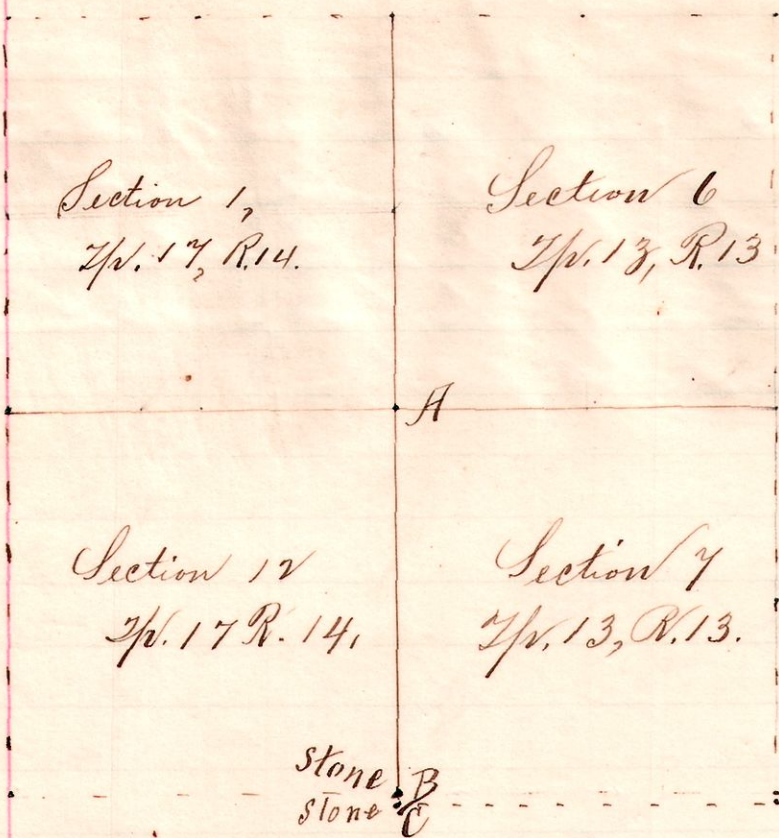 Section 1,
Tp. 17, R. 14.
Section 6
Tp. 13, R. 13
A
Section 12
Tp. 17 R. 14,
Section 7
Tp. 13, R. 13.
Stone B
Stone C